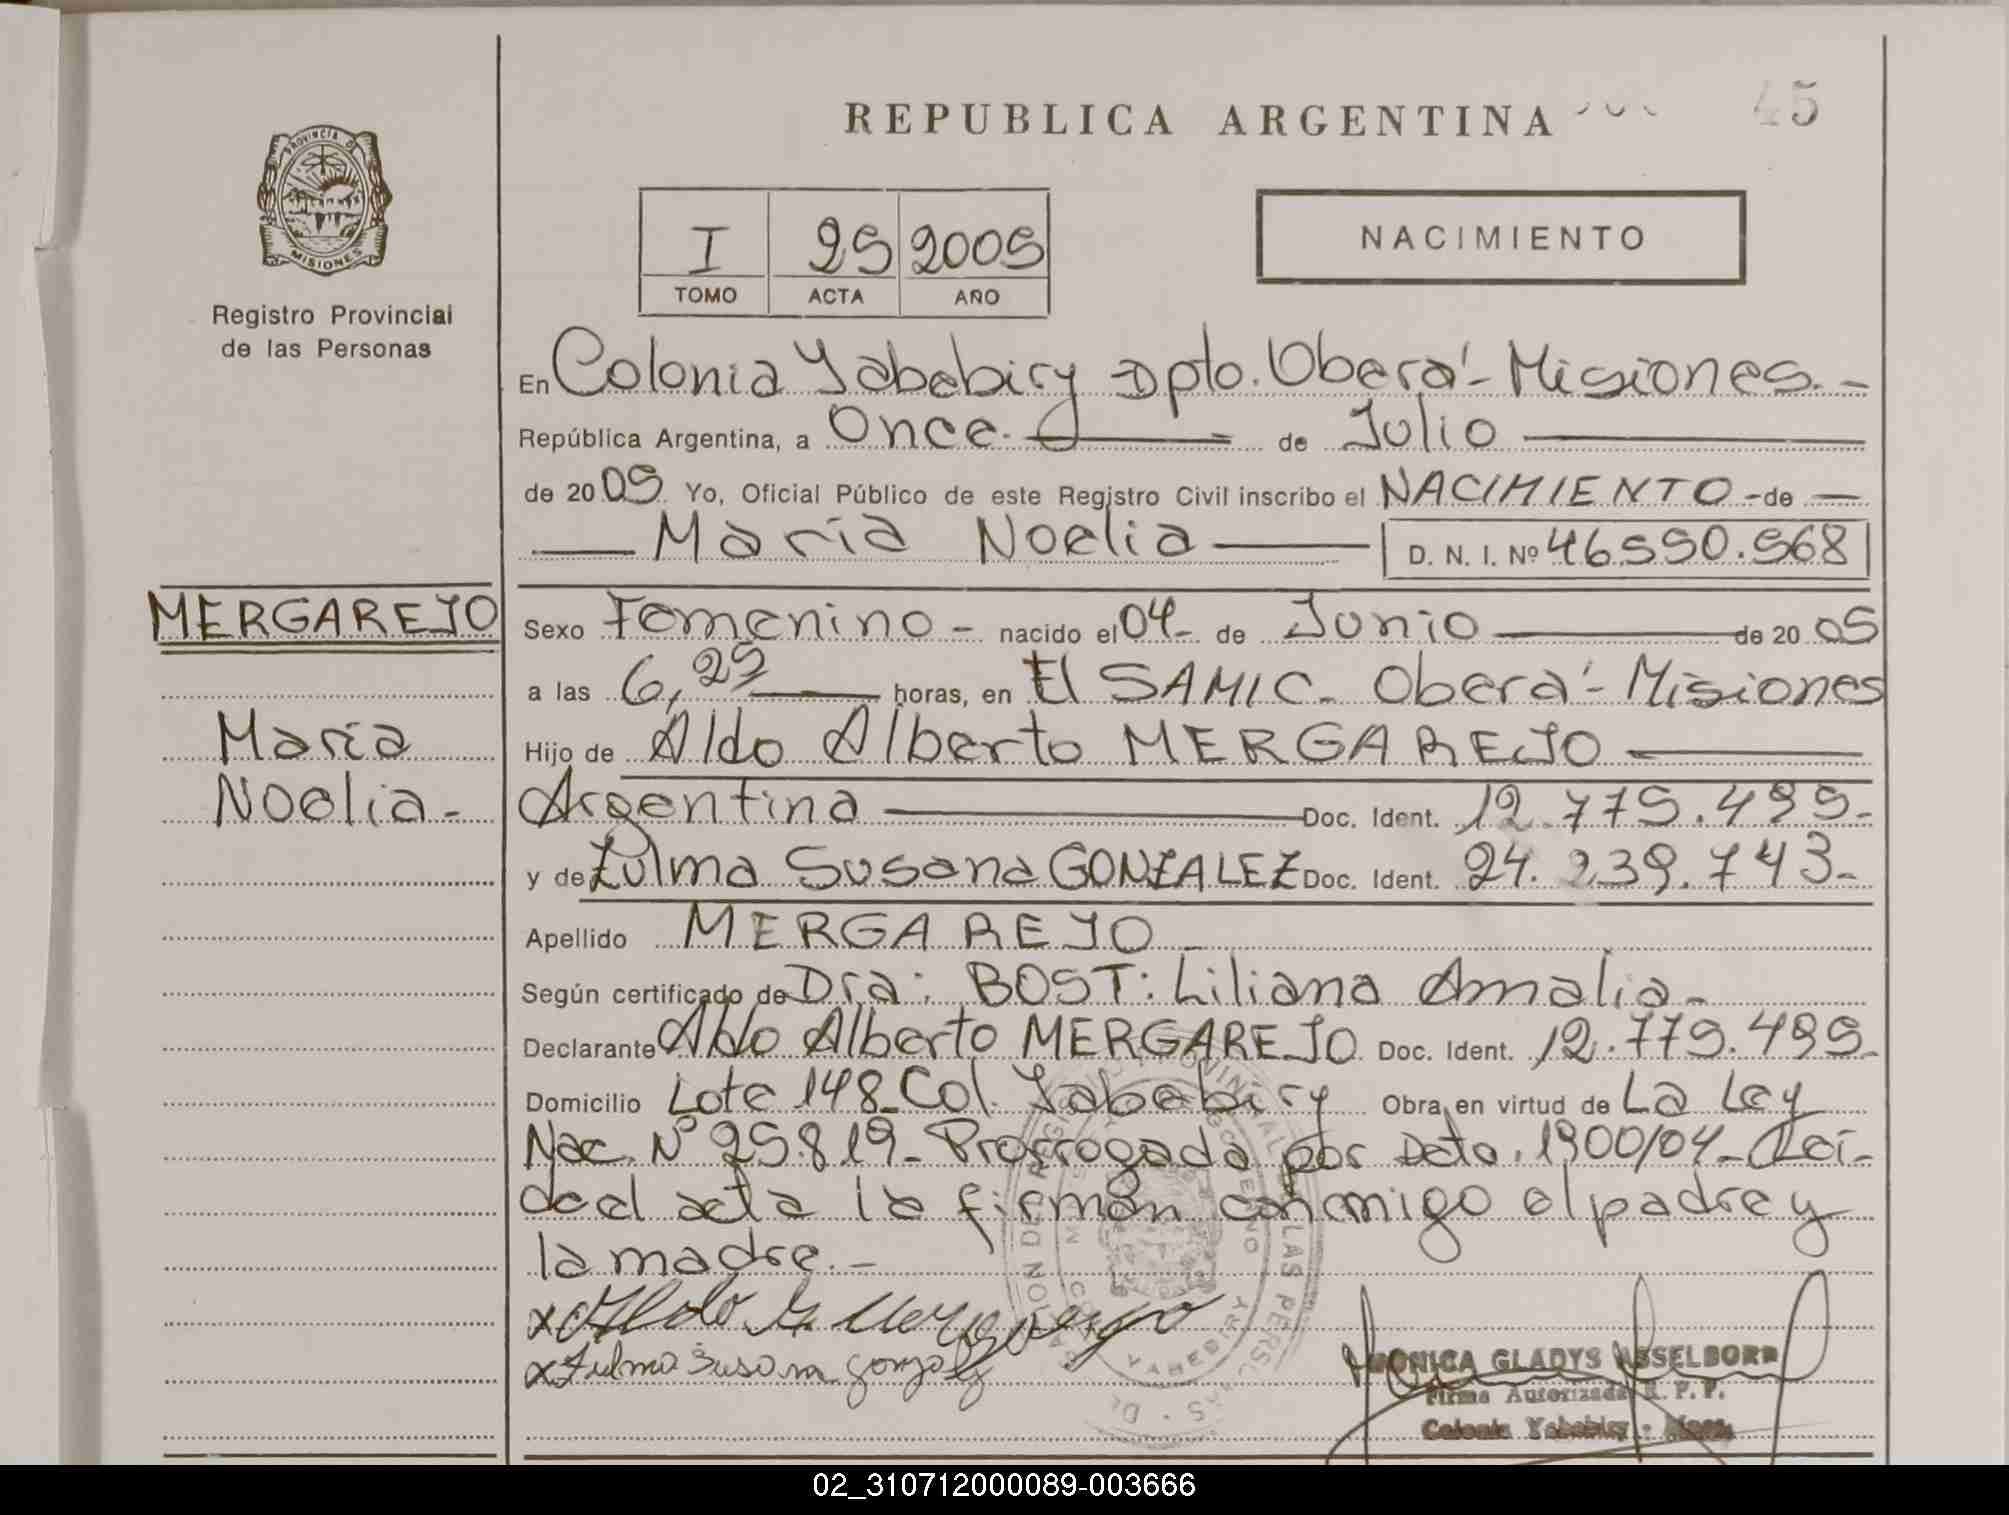 REPUBLICA ARGENTINA
45
PROVINCIA DE
MISIONES
Registro Provincial
de las Personas
I 25 2005
TOMO ACTA AÑO
NACIMIENTO
En Colonia Yabebiry Dpto. Oberá - Misiones. -
República Argentina, a Once. de Julio
de 20 05 Yo, Oficial Público de este Registro Civil inscribo el NACIMIENTO - de
María Noelia D. N. I. Nº 46.550.568
MERGAREJO
Sexo Femenino - nacido el 04 - de Junio de 20 05
a las 6,25 horas, en El SAMIC - Oberá - Misiones
María
Hijo de Aldo Alberto MERGAREJO
Noelia -
Argentina Doc. Ident. 12.775.495 -
y de Zulma Susana GONZALEZ Doc. Ident. 24.239.743 -
Apellido MERGAREJO -
Según certificado de Dra: BOST: Liliana Amalia -
Declarante Aldo Alberto MERGAREJO Doc. Ident. 12.775.495 -
Domicilio Lote 148 - Col. Yabebiry Obra en virtud de La Ley
Nac. Nº 25.819 - Prorrogada por Dcto. 1900/04 - Leí-
da el acta la firman conmigo el padre y
la madre. -
x Aldo A. Mergarejo
x Zulma Susana Gonzalez
MONICA GLADYS HASSELBORN
Firma Autorizada R. P. P.
Colonia Yabebiry - Mnes.
02_310712000089-003666